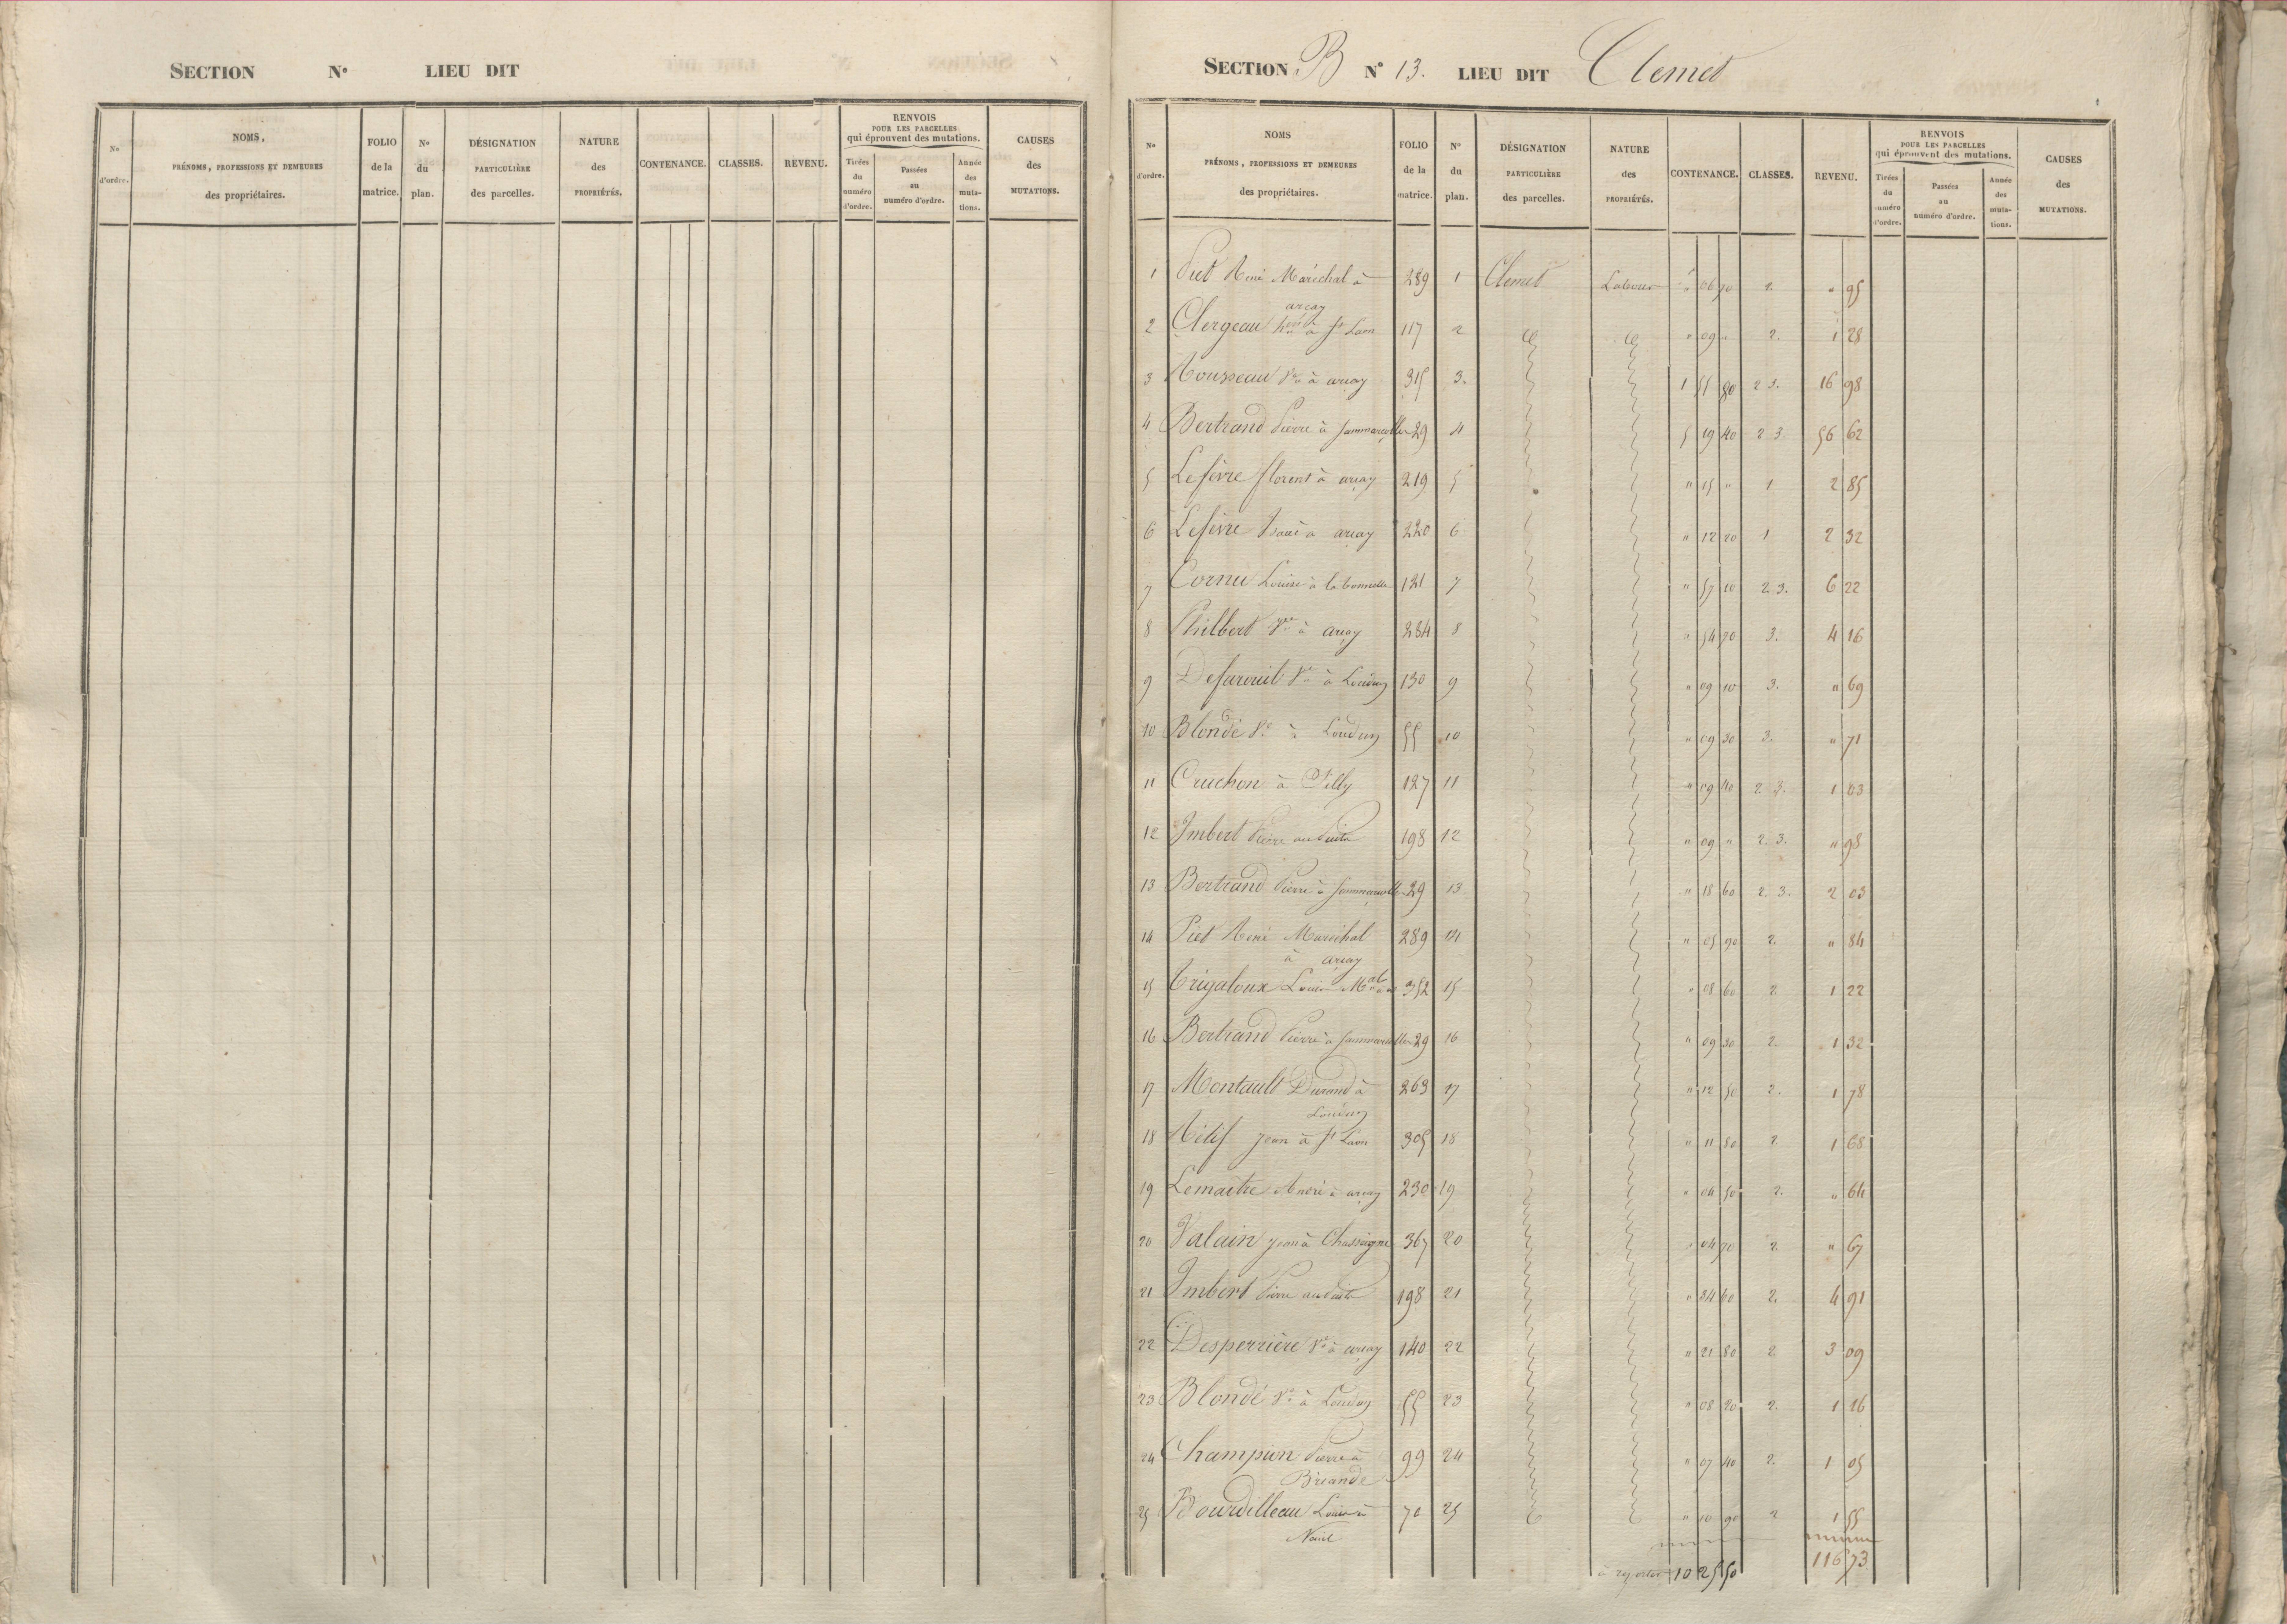 SECTION N° LIEU DIT
N° d'ordre. NOMS, PRÉNOMS, PROFESSIONS ET DEMEURES des propriétaires. FOLIO de la matrice. N° du plan. DÉSIGNATION PARTICULIÈRE des parcelles. NATURE des PROPRIÉTÉS. CONTENANCE. CLASSES. REVENU. RENVOIS POUR LES PARCELLES qui éprouvent des mutations. Tirées du numéro d'ordre. Passées au numéro d'ordre. Année des muta- tions. CAUSES des MUTATIONS.
SECTION B N° 13. LIEU DIT Clemet
N° d'ordre. NOMS PRÉNOMS, PROFESSIONS ET DEMEURES des propriétaires. FOLIO de la matrice. N° du plan. DÉSIGNATION PARTICULIÈRE des parcelles. NATURE des PROPRIÉTÉS. CONTENANCE. CLASSES. REVENU. RENVOIS POUR LES PARCELLES qui éprouvent des mutations. Tirées du numéro d'ordre. Passées au numéro d'ordre. Année des muta- tions. CAUSES des MUTATIONS.
1 Piet René Maréchal à 289 1 Clemet Labour " 06 70 2. " 95
arçay
2 Clergeau à St Laon 117 2 " 09 " 2. 1 28
3 Rousseau Ve à arçay 315 3. 1 51 80 2 3. 16 98
4 Bertrand Pierre à Sammarçolles 29 4 5 19 40 2 3 56 62
5 Lefèvre florent à arçay 219 5 " 15 " 1 2 85
6 Lefèvre Isaac à arçay 220 6 " 12 20 1 2 32
7 Cornu Louise à la bonnette 121 7 " 57 10 2. 3. 6 22
8 Philbert à arçay 284 8 " 54 70 3. 4 16
9 Ve à Loudun 130 9 " 09 10 3. " 69
10 Blondé Ve à Loudun 55 10 " 09 30 3. " 71
11 Cruchon à Silly 127 11 " 09 40 2 3. 1 03
12 Imbert Pierre 198 12 " 09 " 2. 3. " 98
13 Bertrand Pierre à Sammarçolles 29 13 " 18 60 2. 3. 2 03
14 Piet René Maréchal 289 14 " 05 90 2. " 84
à arçay
15 Trigaloux Louis 352 15 " 08 60 2. 1 22
16 Bertrand Pierre à Sammarçolles 29 16 " 09 30 2. 1 32
17 Montault Durand à 263 17 " 12 50 2. 1 78
Loudun
18 Rétif Jean à St Laon 305 18 " 11 80 2. 1 68
19 Lemaitre André à arçay 230 19 " 04 50 2. " 64
20 Valain Jean à Chassigne 367 20 " 04 70 2. " 67
21 Imbert Pierre 198 21 " 34 60 2. 4 91
22 Desperrière Ve à arçay 140 22 " 21 80 2 3 09
23 Blondé Ve à Loudun 55 23 " 08 20 2. 1 16
24 Champion Pierre à 99 24 " 07 40 2. 1 05
Briande
25 Bourdilleau Louis à 70 25 " 10 90 2 1 55
à reporter 10 25 50 116 73